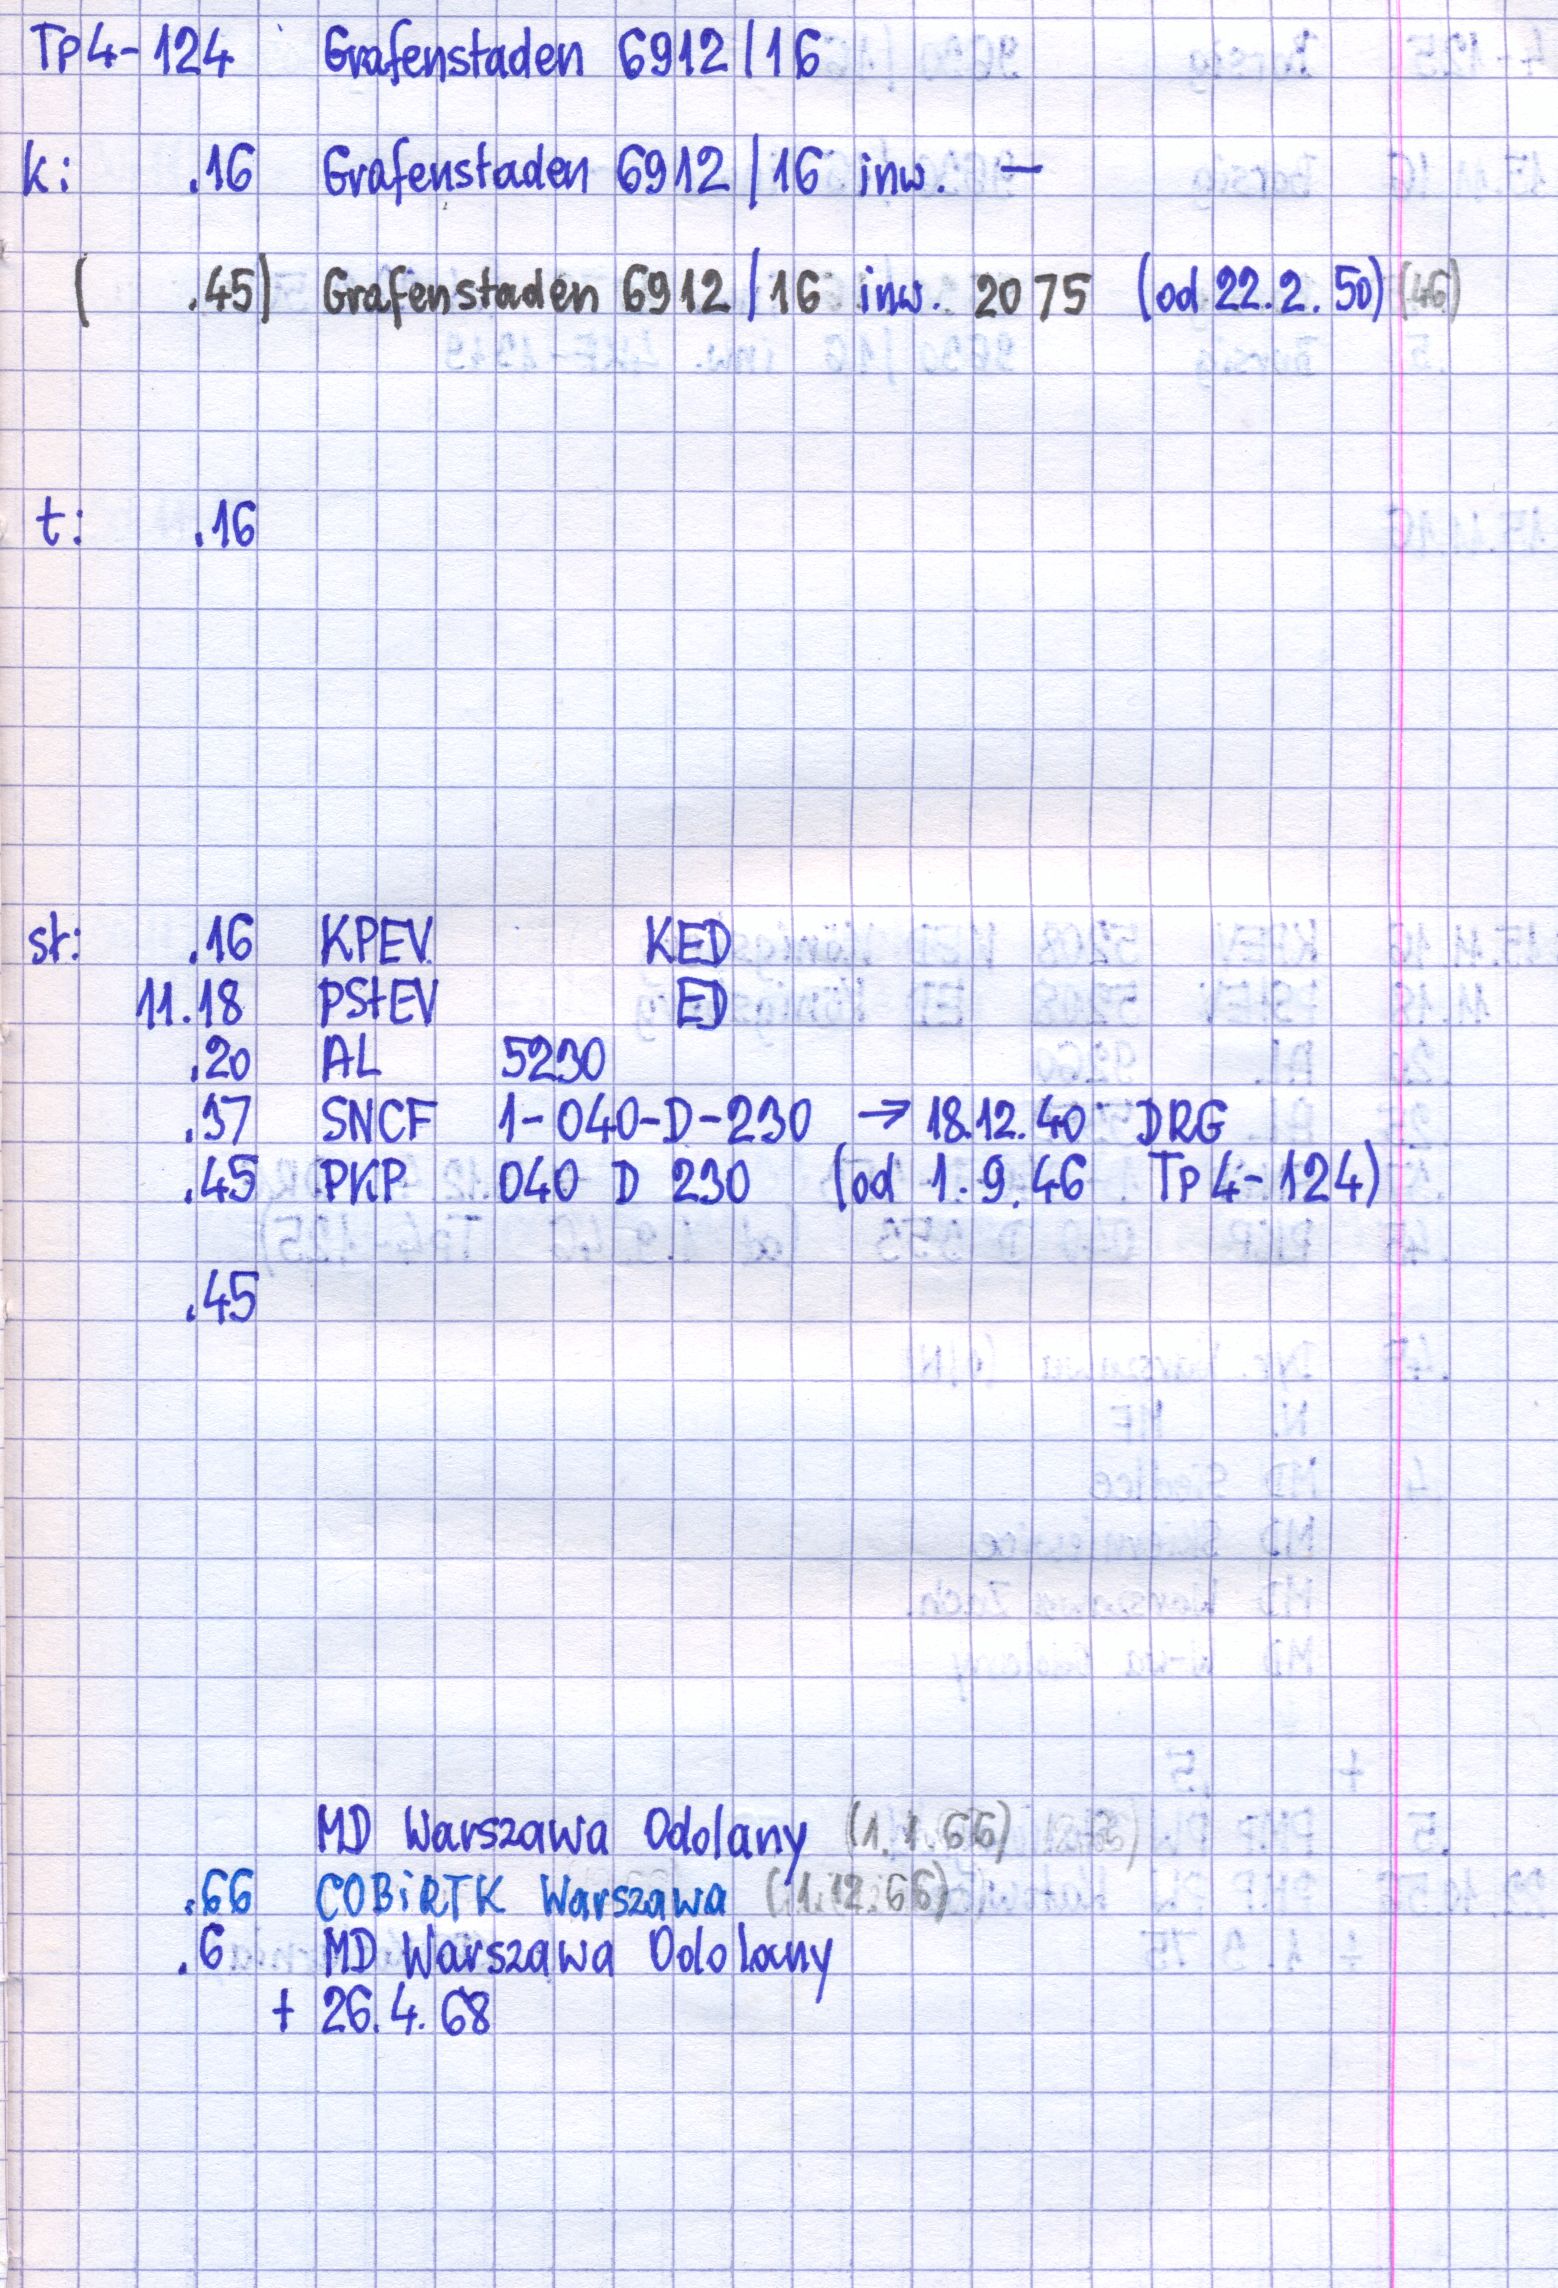 Tp4-124 Grafenstaden 6912/16
k: .16 Grafenstaden 6912/16 inw. —
( .45) Grafenstaden 6912/16 inw. 2075 (od 22.2.50) (46)
t: .16
st: .16 KPEV KED
11.18 PStEV ED
.20 AL 5230
.37 SNCF 1-040-D-230 → 18.12.40 DRG
.45 PKP 040 D 230 (od 1.9.46 Tp4-124)
.45
MD Warszawa Odolany (1.1.66)
.66 COBiRTK Warszawa (1.12.66)
.6 MD Warszawa Odolany
+ 26.4.68